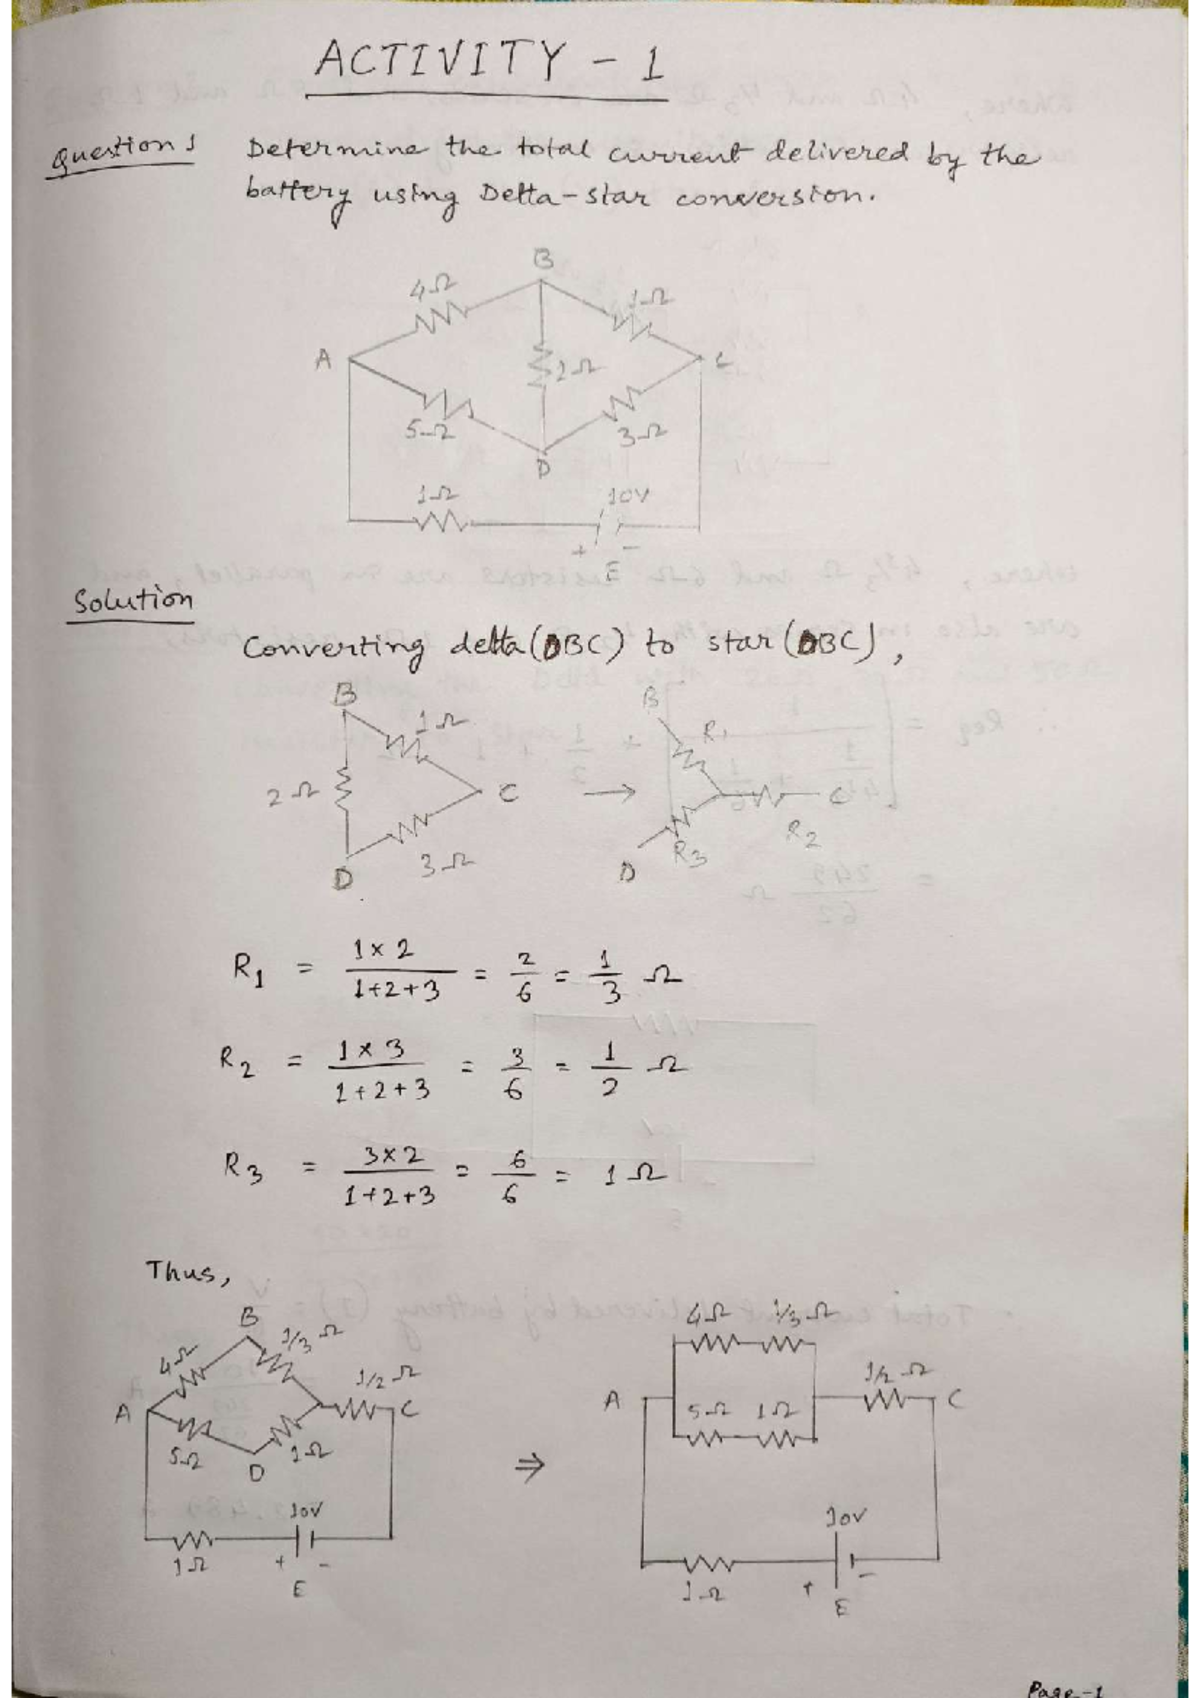 ACTIVITY - 1
Question 1 Determine the total current delivered by the
battery using Delta-star conversion.
B
4Ω 1Ω
A 2Ω C
5Ω 3Ω
D
1Ω 10V
+ -
E
Solution
Converting delta (DBC) to star (DBC),
B B
1Ω R1
2Ω C → C
R2
3Ω R3
D D
R1 = 1×2 / 1+2+3 = 2/6 = 1/3 Ω
R2 = 1×3 / 1+2+3 = 3/6 = 1/2 Ω
R3 = 3×2 / 1+2+3 = 6/6 = 1Ω
Thus,
B
4Ω 1/3 Ω
1/2 Ω
A C
5Ω 1Ω
D
10V
1Ω + -
E
⇒
4Ω 1/3Ω
1/2 Ω
A C
5Ω 1Ω
10V
1Ω + -
E
Page-1